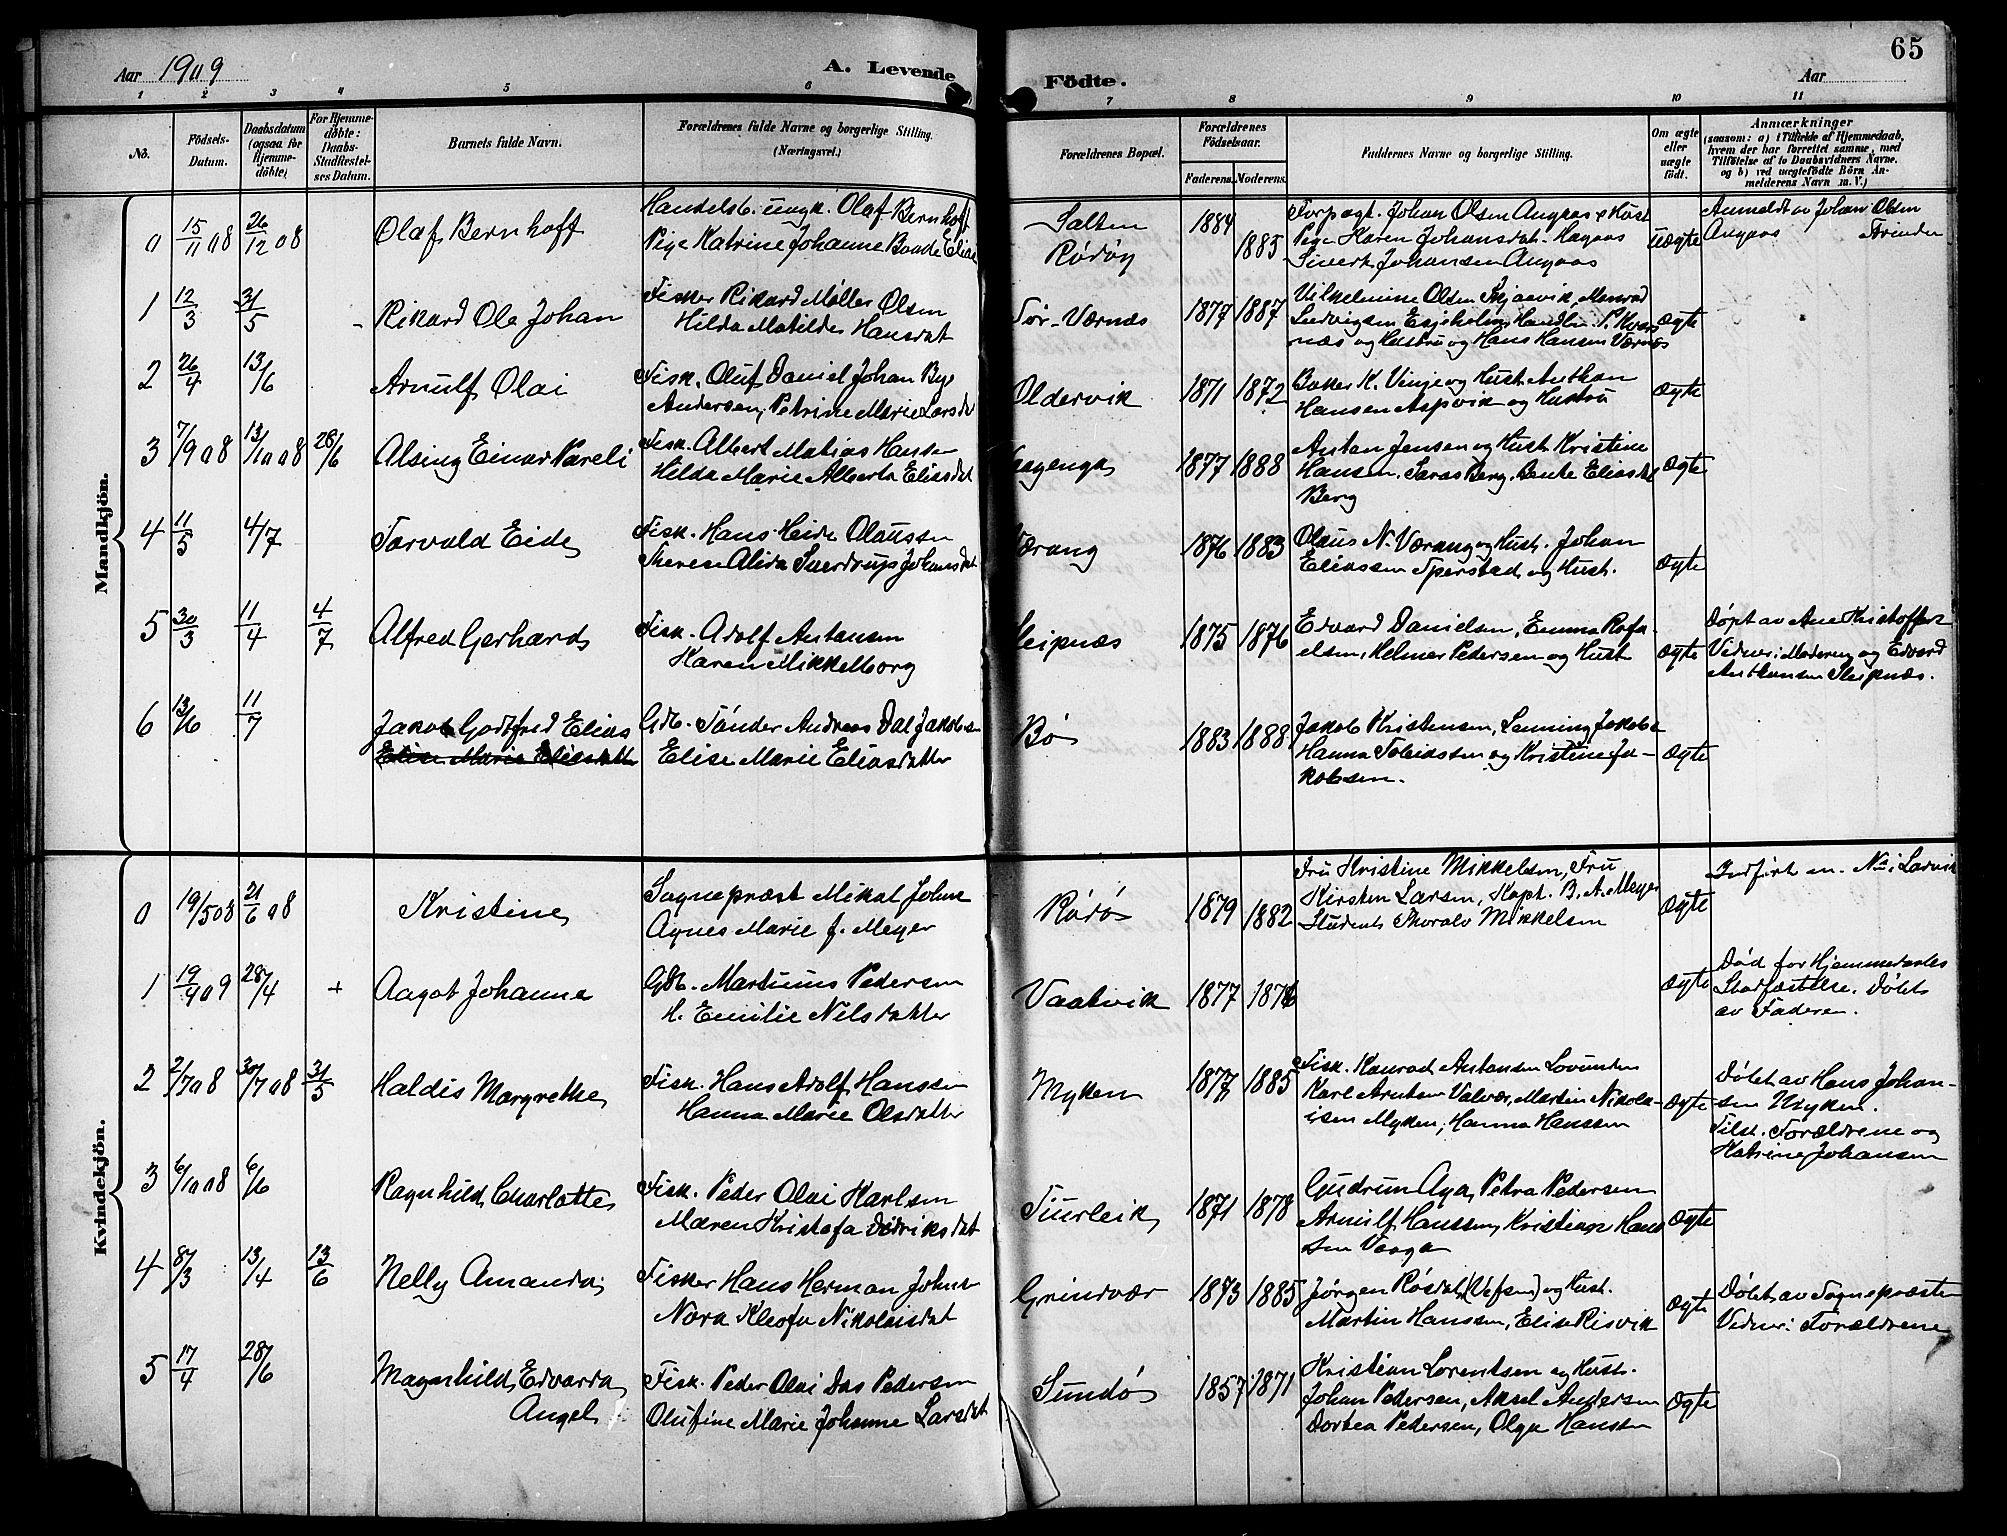 65
Aar 1909
A. Levende
Födte.
Aar
1 2 3 4 5 6 7 8 9 10 11
No.
Födsels-Datum.
Daabsdatum (ogsaa for Hjemmedöbte)
For Hjemmedöbte: Daabs-Stadfæstelses Datum.
Barnets fulde Navn.
Forældrenes fulde Navne og borgerlige Stilling.
(Næringsvei.)
Forældrenes Bopæl.
Forældrenes Födselsaar.
Faderens. Moderens.
Faddernes Navne og borgerlige Stilling.
Om ægte eller uægte födt.
Anmærkninger
(saasom: a) i Tilfælde af Hjemmedaab, hvem der har forrettet samme, med Tilföielse af to Daabsvidners Navne, og b) ved uægtefödte Börn Anmelderens Navn m. V.)
Mandkjön.
0 15/11 08 26/12 08 Olaf Bernhoff
Handelsb. ungk. Olaf Bernhoff
Pige Katrine Johanne Elise
Salten
Rødøy
1884
1885
Forpagt. Johan Olsen Angaas & Hust
Pige Karen Johansdat. Hagaas
Sivert Johansen Angaas
Uægte
Anmeldt av Johan Olsen
Angaas
1 12/3 31/5 Rikard Ole Johan
Fisker Rikard Møller Olsen
Hilda Matilde Hansdat
Sør-Værnæs 1877 1887
Vilhelmine Olsen Skjaavik, Monrad
Ludvigsen Esjeholm, Handlm. P. Kvar
næs og Hustru og Hans Hansen Værnæs
Ægte
2 26/4 13/6 Arnulf Olai
Fisk. Oluf Daniel Johan Bye
Andersen, Petrine Marie Larsdat
Oldervik 1871 1872
Baker K. Vinje og Hust. Anthon
Hansen Aspvik og Hustru
Ægte
3 7/9 08 13/10 08 28/6 Alsing Einar Kareli
Fisk. Albert Matias Hansen
Hilda Marie Alberta Eliasdat
1877 1888
Anton Jensen og Hust. Kristine
Hansen, Saras Berg, Bente Eliasdat
Berg
Ægte
4 11/5 4/7 Torvald Eide
Fisk. Hans Heide Olaussen
Therese Alida Sverdrup Johansdat
Værang 1876 1883
Olaus N. Værang og Hust. Johan
Eliassen Sperstad og Hust.
Ægte
5 30/3 11/4 4/7 Alfred Gerhard
Fisk. Adolf Antonsen
Karen Mikkelborg
Sleipnæs 1875 1876
Edvard Danielsen, Emma Rafa-
elsen, Helmer Pedersen og Hust
Ægte
Døpt av Ane Kristoffers
Vidner: Moderen og Edvard
Anthonsen Sleipnæs.
6 13/6 11/7 Jakob Godtfred Elias
Elise Marie Eliasdatter
Gdb. Tønder Andreas Dal Jakobsen
Elise Marie Eliasdatter
Bø 1883 1888
Jakob Kristensen, Lenning Jakobs
Hanna Tobiassen og Kristine Ja-
kobsen.
Ægte
Kvindekjön.
0 19/5 08 21/6 08 Kristine
Sognepræst Mikal Johns
Agnes Marie f. Meyer
Rødø 1879 1882
Fru Kristine Mikkelsen, Fru
Kirsten Larsen, Kapt. B. A. Meyer
Student Thoralv Mikkelsen
Ægte
Indført m. No i Larvik
1 19/4 09 28/4 + Aagot Johanne
Gdb. Martinus Pedersen
H. Emilie Nilsdatter
Vaatvik 1877 1876
Ægte
Død før Hjemmedaabs
Stadfæstelse. Døbt
av Faderen.
2 2/7 08 30/7 08 31/5 Haldis Margrethe
Fisk. Hans Adolf Hanssen
Hanna Marie Olsdatter
Myken 1877 1885
Fisk. Konrad Antonsen Lovunden
Karl Arntsen Valvær, Martin Nikola-
isen Myken, Hanna Hanssen
Ægte
Døbt av Hans Johan-
sen Myken.
Tilst. Forældrene og
Katrine Johansen
3 6/10 08 6/6 Ragnhild Charlotte
Fisk. Peder Olai Karlsen
Maren Kristofa Didriksdat
1871 1878
Gudrun Aga, Petra Pedersen
Arnulf Hanssen, Kristian Hans
sen Vaaga
Ægte
4 8/3 13/4 13/6 Nelly Amanda
Fisker Hans Herman Johns
Nora Kleofa Nikolaisdat
Grindvær 1873 1885
Jørgen Røsdal, (Vefsn) og Hust.
Martin Hanssen, Elise Risvik
Ægte
Døbt av Sognepræsten
Vidner: Forældrene
5 17/4 28/6 Magnhild Edvarda
Angel
Fisk. Peder Olai Das Pedersen
Olufine Marie Johanne Larsdat
Sundø 1857 1871
Kristian Lorentsen og Hust.
Johan Pedersen, Aksel Andersen
Dortea Pedersen, Olga Hansen
Ægte